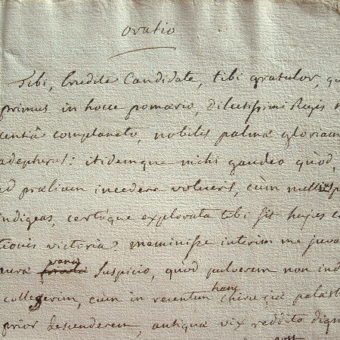 oratio
Tibi, erudite Candidate, tibi gratulor, qu
primus in hocce pomario, dilectissimi Regis
centiâ complantato, nobiles palmæ gloriam
adeptus es: itidemque mihi gaudeo quòd,
ad prælium incedere volueris, cùm
indigeas, certique explorata tibi sit hujus c
tionis victoria. meminisse interim me juva
suspicio, quod pulverem non ind
collegerim, cum in recentem hanc palæst
prior descenderem, antiquæ vix reddito dign